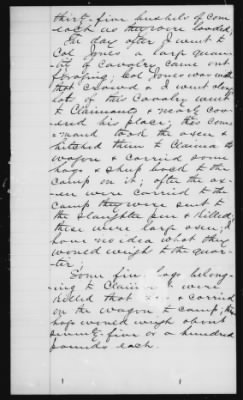 thirty-five bushels of corn
each as they were loaded.
The day after I went to
Col Jones a large quan-
tity of Cavalry came out
foraging; Col Jones was with
that crowd & I went
lot of this Cavalry went
to Claimants & nearly cov-
ered his place; this com-
mand took the oxen &
hitched them to Claimants
wagon & carried some
hogs & sheep back to the
camp on it; after the ox-
en were carried to the
camp they were sent to
the slaughter pen & killed;
these were large oxen; I
have no idea what they
would weigh to the quar-
ter;
Some fine hogs belong-
ing to Claimant were
killed that & carried
on the wagon to camp, the
hogs would weigh about
seventy-five or a hundred
pounds each.